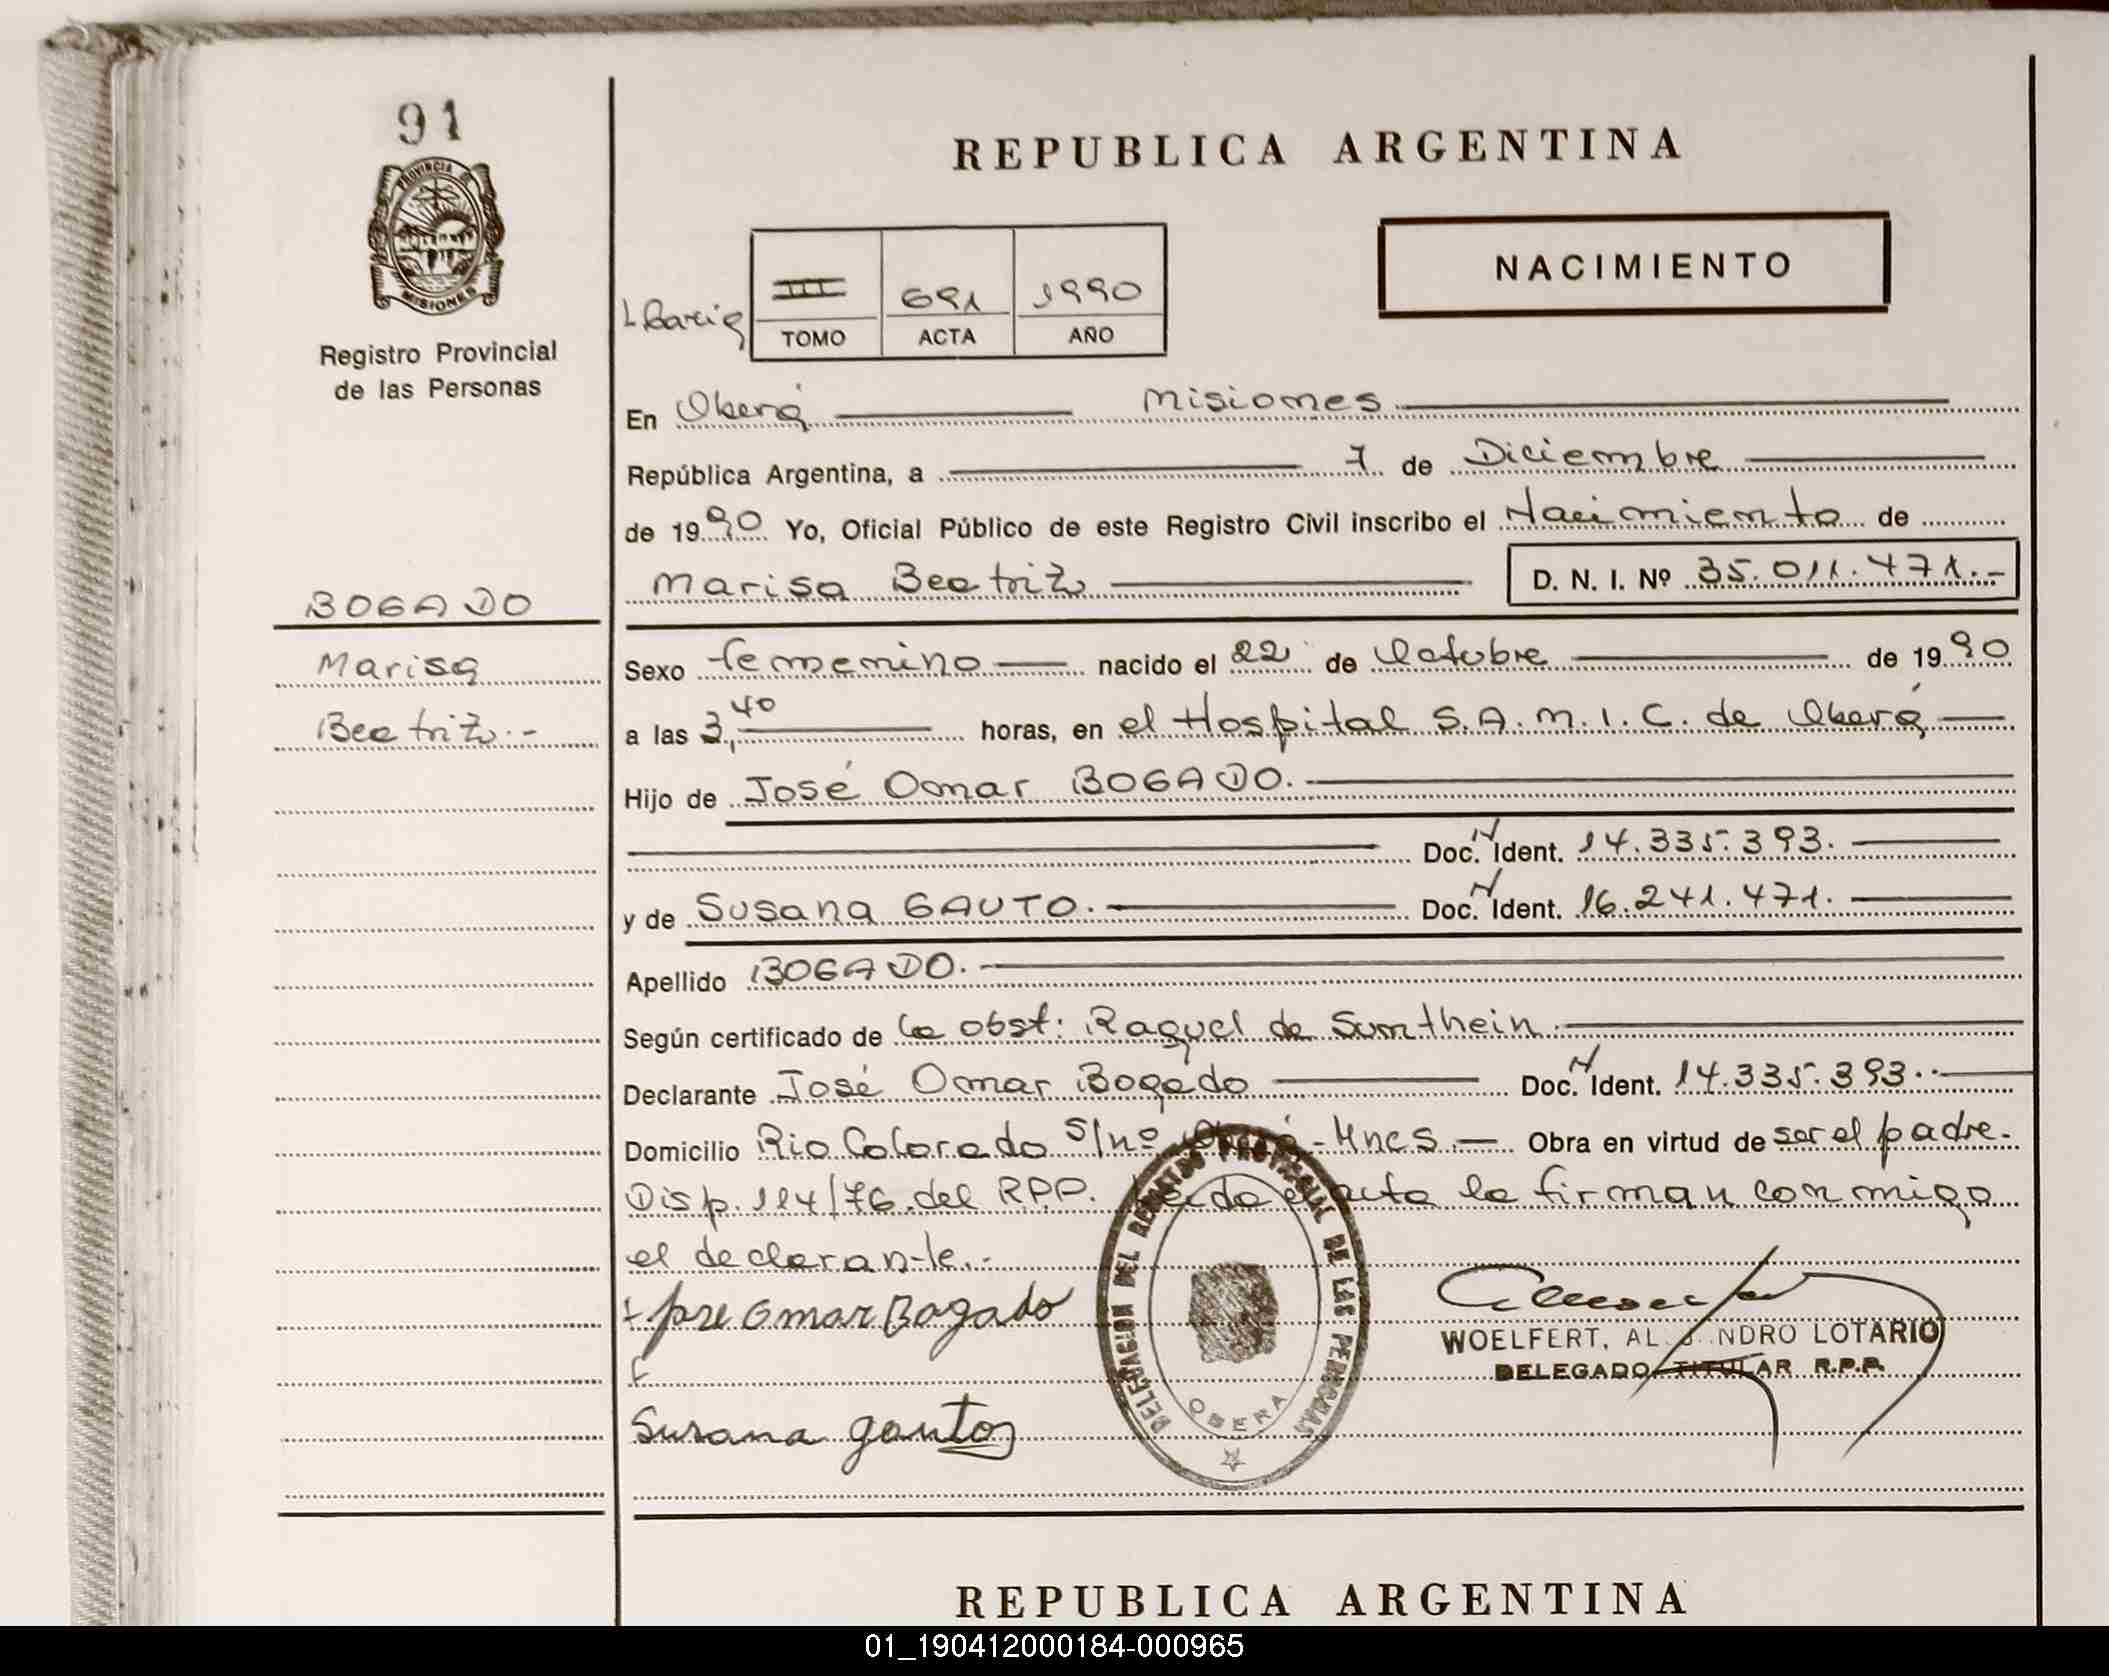 91
REPUBLICA ARGENTINA
PROVINCIA DE
MISIONES
Registro Provincial
de las Personas
NACIMIENTO
III 691 1990
TOMO ACTA AÑO
En Oberá Misiones
República Argentina, a 7 de Diciembre
de 1990 Yo, Oficial Público de este Registro Civil inscribo el Nacimiento de
Marisa Beatriz D. N. I. Nº 35.011.471.-
BOGADO
Marisa
Beatriz.-
Sexo femenino nacido el 22 de Octubre de 1990
a las 3,40 horas, en el Hospital S.A.M.I.C. de Oberá
Hijo de José Omar BOGADO.
Doc. N Ident. 14.335.393.
y de Susana GAUTO. Doc. N Ident. 16.241.471.
Apellido BOGADO.
Según certificado de la obst: Raquel de Sumthein.
Declarante José Omar Bogado Doc. N Ident. 14.335.393.
Domicilio Rio Colorado S/nº Oberá-Mnes. Obra en virtud de ser el padre.
Disp. 114/76 del R.P.P. Leida el acta la firman conmigo
el declarante.-
Jose Omar Bogado
Susana gauto
DELEGACION DEL REGISTRO PROVINCIAL DE LAS PERSONAS
OBERA
WOELFERT, AL NDRO LOTARIO
DELEGADO TITULAR R.P.P.
REPUBLICA ARGENTINA
01_190412000184-000965